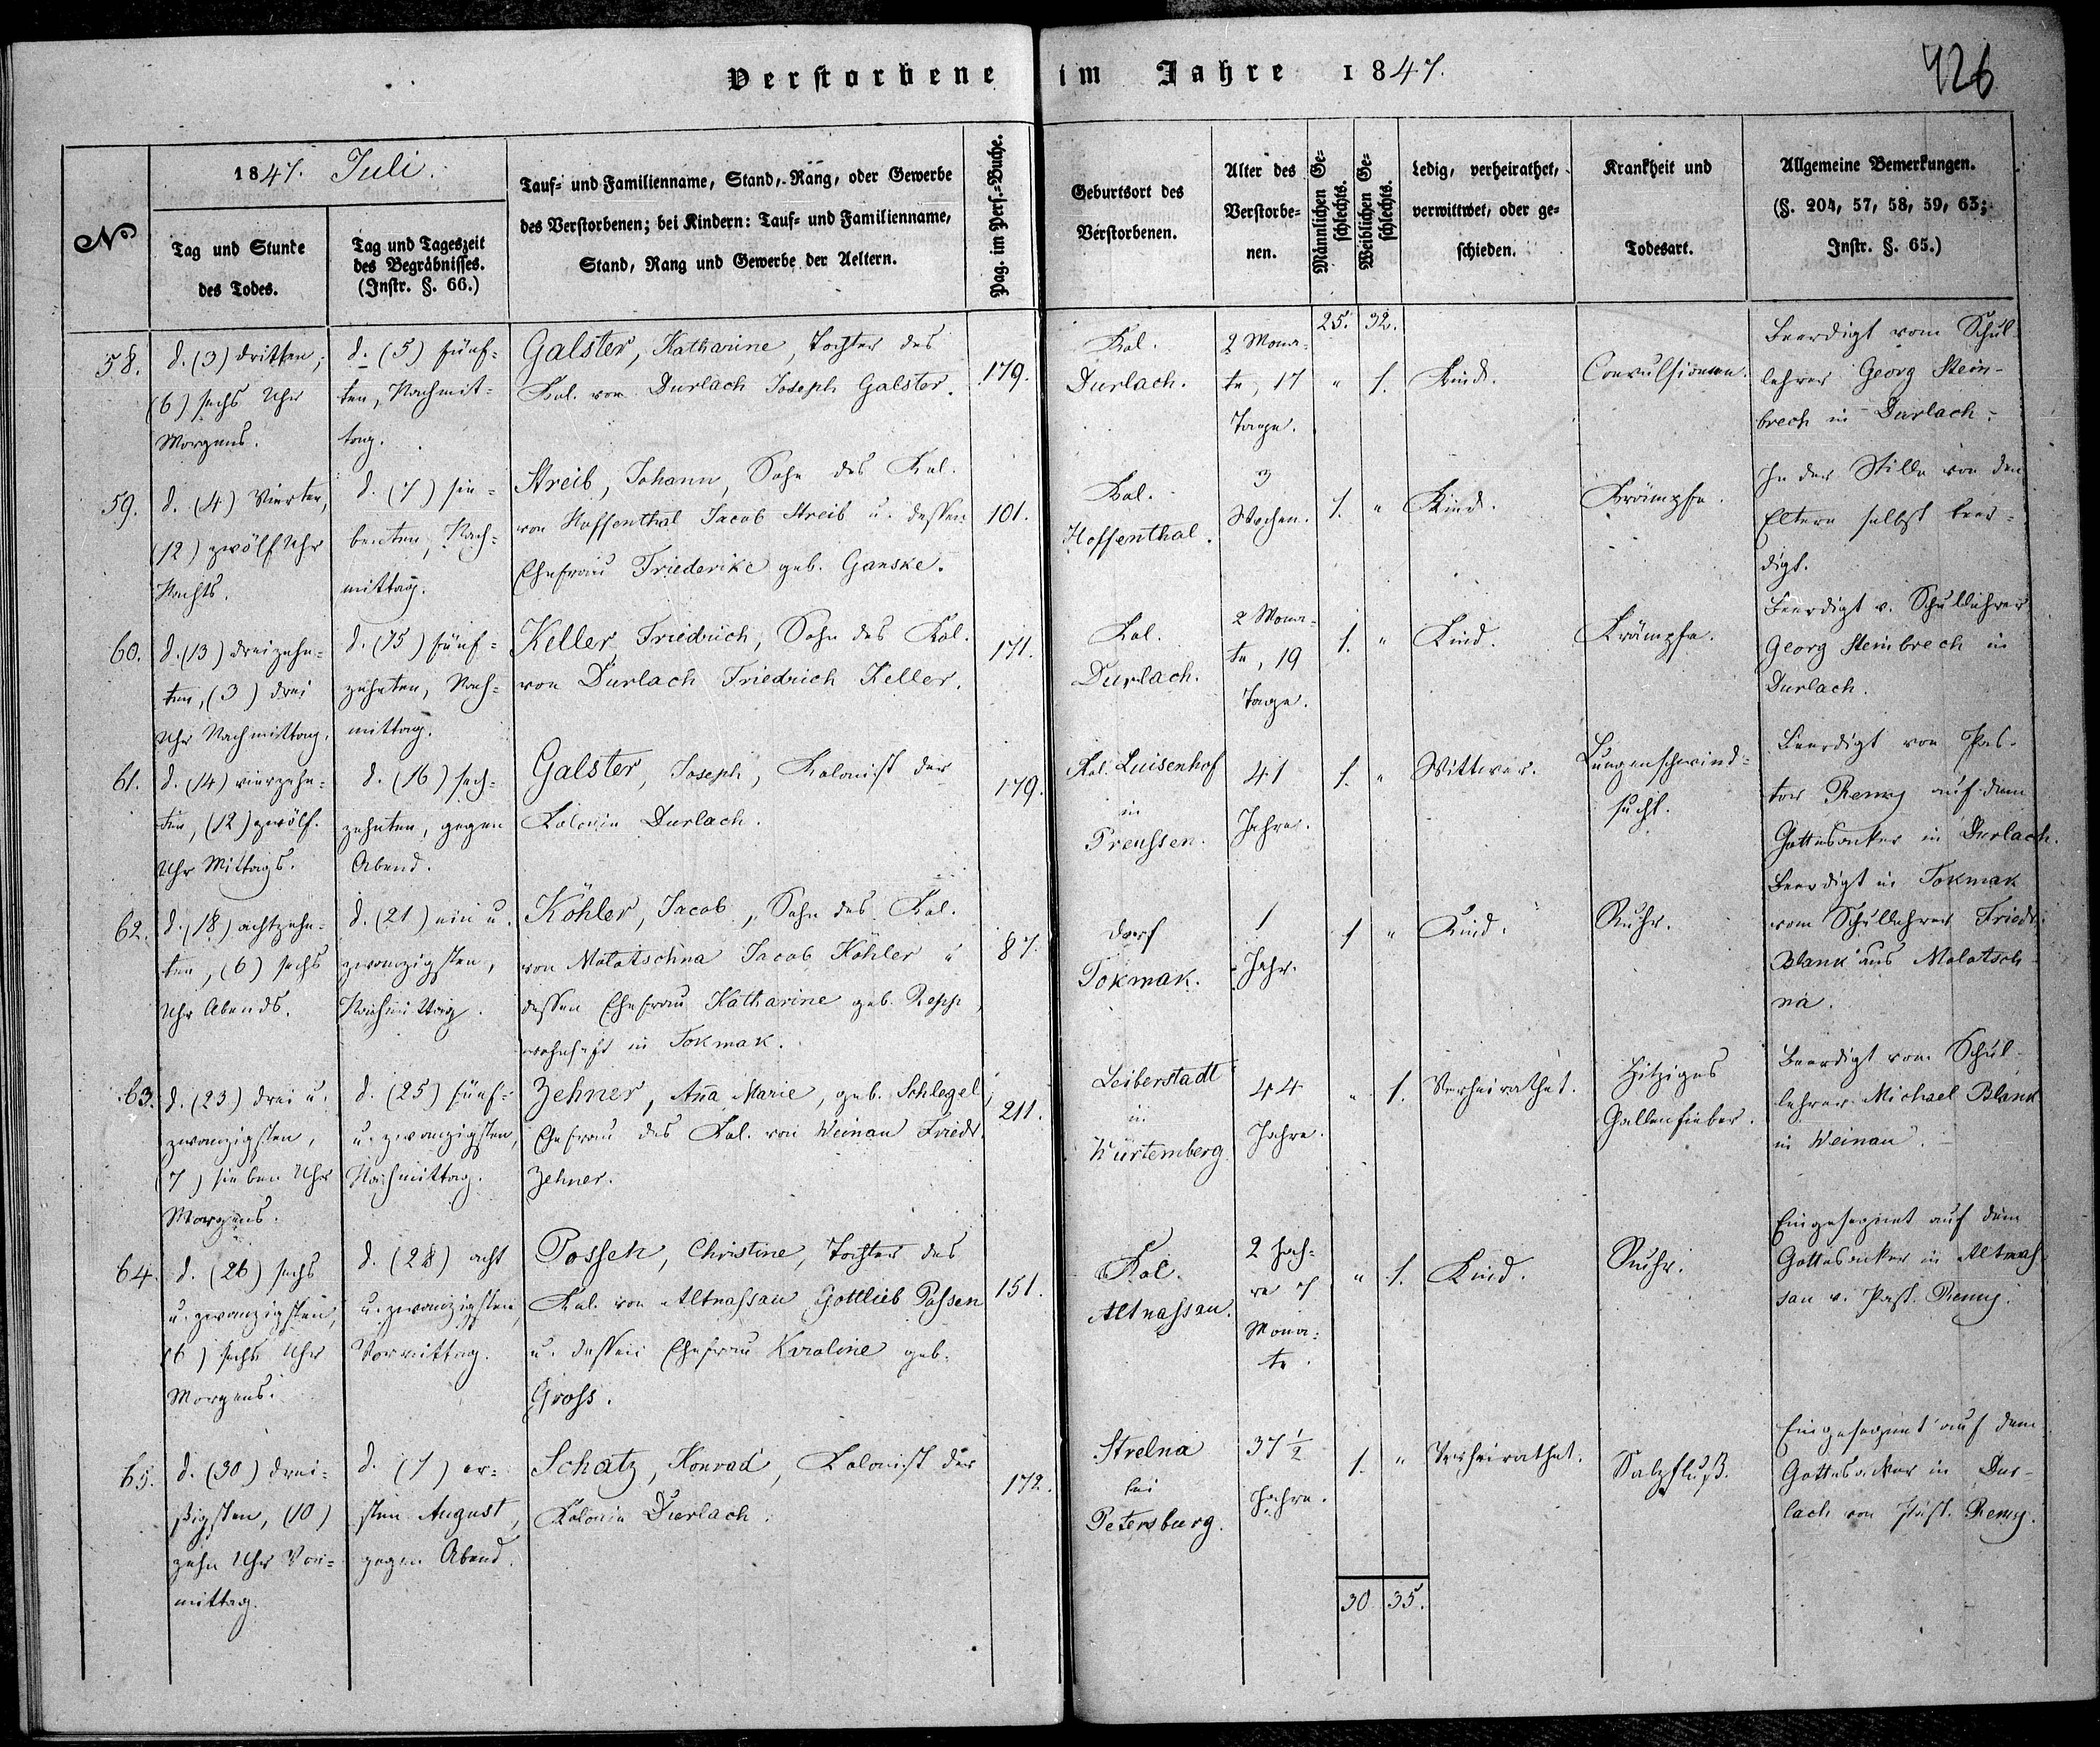 Verstorbene im Jahre 1847.
426
Nº
1847. Juli.
Tag und Stunde
des Todes.
Tag und Tageszeit
des Begräbnisses.
(Instr. §. 66.)
Tauf= und Familienname, Stand, Rang, oder Gewerbe
des Verstorbenen; bei Kindern: Tauf= und Familienname,
Stand, Rang und Gewerbe der Aeltern.
Pag. im Pers.=Buche.
Geburtsort des
Verstorbenen.
Alter des
Verstorbe=
nen.
Männlichen Ge=
schlechts.
Weiblichen Ge=
schlechts.
Ledig, verheirathet,
verwittwet, oder ge=
schieden.
Krankheit und
Todesart.
Allgemeine Bemerkungen.
(§. 204, 57, 58, 59, 63;
Instr. §. 65.)
25. 32.
58.
d. (3) dritten,
(6) sechs Uhr
Morgens.
d. (5) fünf=
ten, Nachmit=
tag.
Galster, Katharine, Tochter des
Kol. von Durlach Joseph Galster.
179.
Kol.
Durlach.
2 Mona=
te, 17
Tage.
" 1.
Kind.
Convulsionen.
Beerdigt vom Schul
lehrer Georg Stein=
brech in Durlach.
59.
d. (4) Vierten,
(12) zwölf Uhr
Nachts.
d. (7) sie=
benten, Nach=
mittag.
Streib, Johann, Sohn des Kol.
von Hoffenthal Jacob Streib u. dessen
Ehefrau Friederike geb. Ganske.
101.
Kol.
Hoffenthal.
3
Wochen.
1. "
Kind.
Krämpfe.
In der Stille von den
Eltern selbst beer=
digt.
60.
d. (13) dreizehn=
ten, (3) drei
Uhr Nachmittag.
d. (15) fünf=
zehnten, Nach=
mittag.
Keller, Friedrich, Sohn des Kol.
von Durlach Friedrich Keller.
171.
Kol.
Durlach.
2 Mona=
te, 19
Tage.
1. "
Kind.
Krämpfe.
Beerdigt v. Schullehrer
Georg Steinbrech in
Durlach.
61.
d. (14) vierzehn=
ten, (12) zwölf
Uhr Mittags.
d. (16) sech=
zehnten, gegen
Abend.
Galster, Joseph, Kolonist der
Kolonie Durlach.
179.
Kol. Luisenhof
in
Preussen.
41
Jahre.
1. "
Wittwer.
Lungenschwind=
sucht.
Beerdigt von Pas=
tor Remy auf dem
Gottesacker in Durlach.
62.
d. (18) achtzehn=
ten, (6) sechs
Uhr Abends.
d. (21) ein u.
zwanzigsten,
Nachmittag.
Köhler, Jacob, Sohn des Kol.
von Molotschna Jacob Köhler u
dessen Ehefrau Katharine geb. Repp,
wohnhaft in Tokmak.
87.
Dorf
Tokmak.
1
Jahr.
1 "
Kind.
Ruhr.
Beerdigt in Tokmak
vom Schullehrer Friedr.
Blank aus Molotsch=
na.
63.
d. (23) drei u.
zwanzigsten,
(7) sieben Uhr
Morgens.
d. (25) fünf=
u. zwanzigsten,
Nachmittag.
Zehner, Anna Marie, geb. Schlegel,
Ehefrau des Kol. von Weinau Friedr.
Zehner.
211.
Leiberstadt
in
Würtemberg
44
Jahre.
" 1.
Verheirathet.
Hitziges
Gallenfieber.
Beerdigt vom Schul=
lehrer Michael Blank
in Weinau.
64.
d. (26) sechs
u. zwanzigsten,
(6) sechs Uhr
Morgens.
d. (28) acht
u. zwanzigsten,
Vormittag.
Possen, Christine, Tochter des
Kol. von Altnassau Gottlieb Possen
u. dessen Ehefrau Karoline geb.
Gross.
151.
Kol.
Altnassau.
2 Jah=
re 7
Mona=
te.
" 1.
Kind.
Ruhr.
Eingesegnet auf dem
Gottesacker in Altnas=
sau v. Past. Remy.
65.
d. (30) drei=
ßigsten, (10)
zehn Uhr Vor=
mittag.
d. (1) er=
sten August,
gegen Abend.
Schatz, Konrad, Kolonist der
Kolonie Durlach.
172.
Strelna
bei
Petersburg.
37 1/2
Jahre.
1. "
Verheirathet.
Salzfluß.
Eingesegnet auf dem
Gottesacker in Dur=
lach von Past. Remy.
30 35.